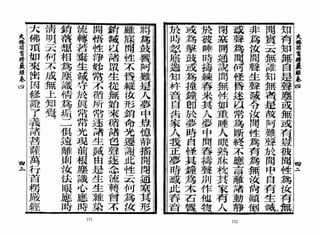 大佛頂首楞嚴經卷四
知有知無自是聲塵或無或有豈彼聞性為汝有無
聞實云無誰知無者是故阿難聲於聞中自有生滅
非為汝聞聲生聲滅令汝聞性為有為無汝尚顛倒
惑聲為聞何怪昏迷以常為斷終不應言離諸動靜
閉塞開通說聞無性如重睡人眠熟牀枕其家有人
於彼睡時擣練舂米其人夢中聞舂擣聲別作他物
或為擊鼓或為撞鐘即於夢時自怪其鐘為木石響
於時忽寤遄知杵音自告家人我正夢時惑此舂音
將為鼓響阿難是人夢中豈憶靜搖開閉通塞其形
雖寐聞性不昏縱汝形銷命光遷謝此性云何為汝
銷滅以諸眾生從無始來循諸色聲逐念流轉曾不
開悟性淨妙常不循所常逐諸生滅由是生生雜染
流轉若棄生滅守於真常常光現前根塵識心應時
銷落想相為塵識情為垢二俱遠離則汝法眼應時
清明云何不成無上知覺
大佛頂如來密因修證了義諸菩薩萬行首楞嚴經